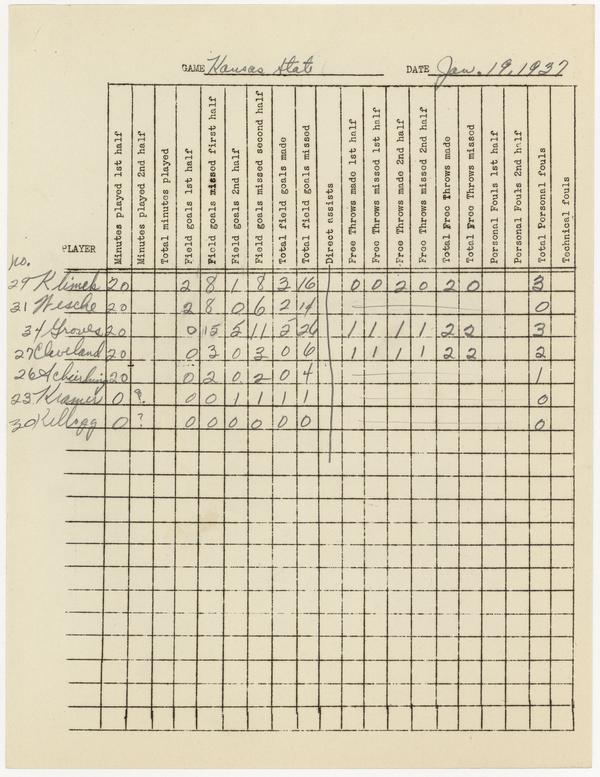 GAME Kansas State DATE Jan. 19, 1937
No. PLAYER Minutes played 1st half Minutes played 2nd half Total minutes played Field goals 1st half Field goals missed first half Field goals 2nd half Field goals missed second half Total field goals made Total field goals missed Direct assists Free Throws made 1st half Free Throws missed 1st half Free Throws made 2nd half Free Throws missed 2nd half Total Free Throws made Total Free Throws missed Personal Fouls 1st half Personal Fouls 2nd half Total Personal fouls Technical fouls
29 Klimek 20 2 8 1 8 3 16 0 0 2 0 2 0 3
31 Wesche 20 2 8 0 6 2 14 0
34 Groves 20 0 15 2 11 2 26 1 1 1 1 2 2 3
27 Cleveland 20 0 3 0 3 0 6 1 1 1 1 2 2 2
26 20 0 2 0 2 0 4 1
23 Kramer 0 ? 0 0 1 1 1 1 0
30 Kellogg 0 ? 0 0 0 0 0 0 0